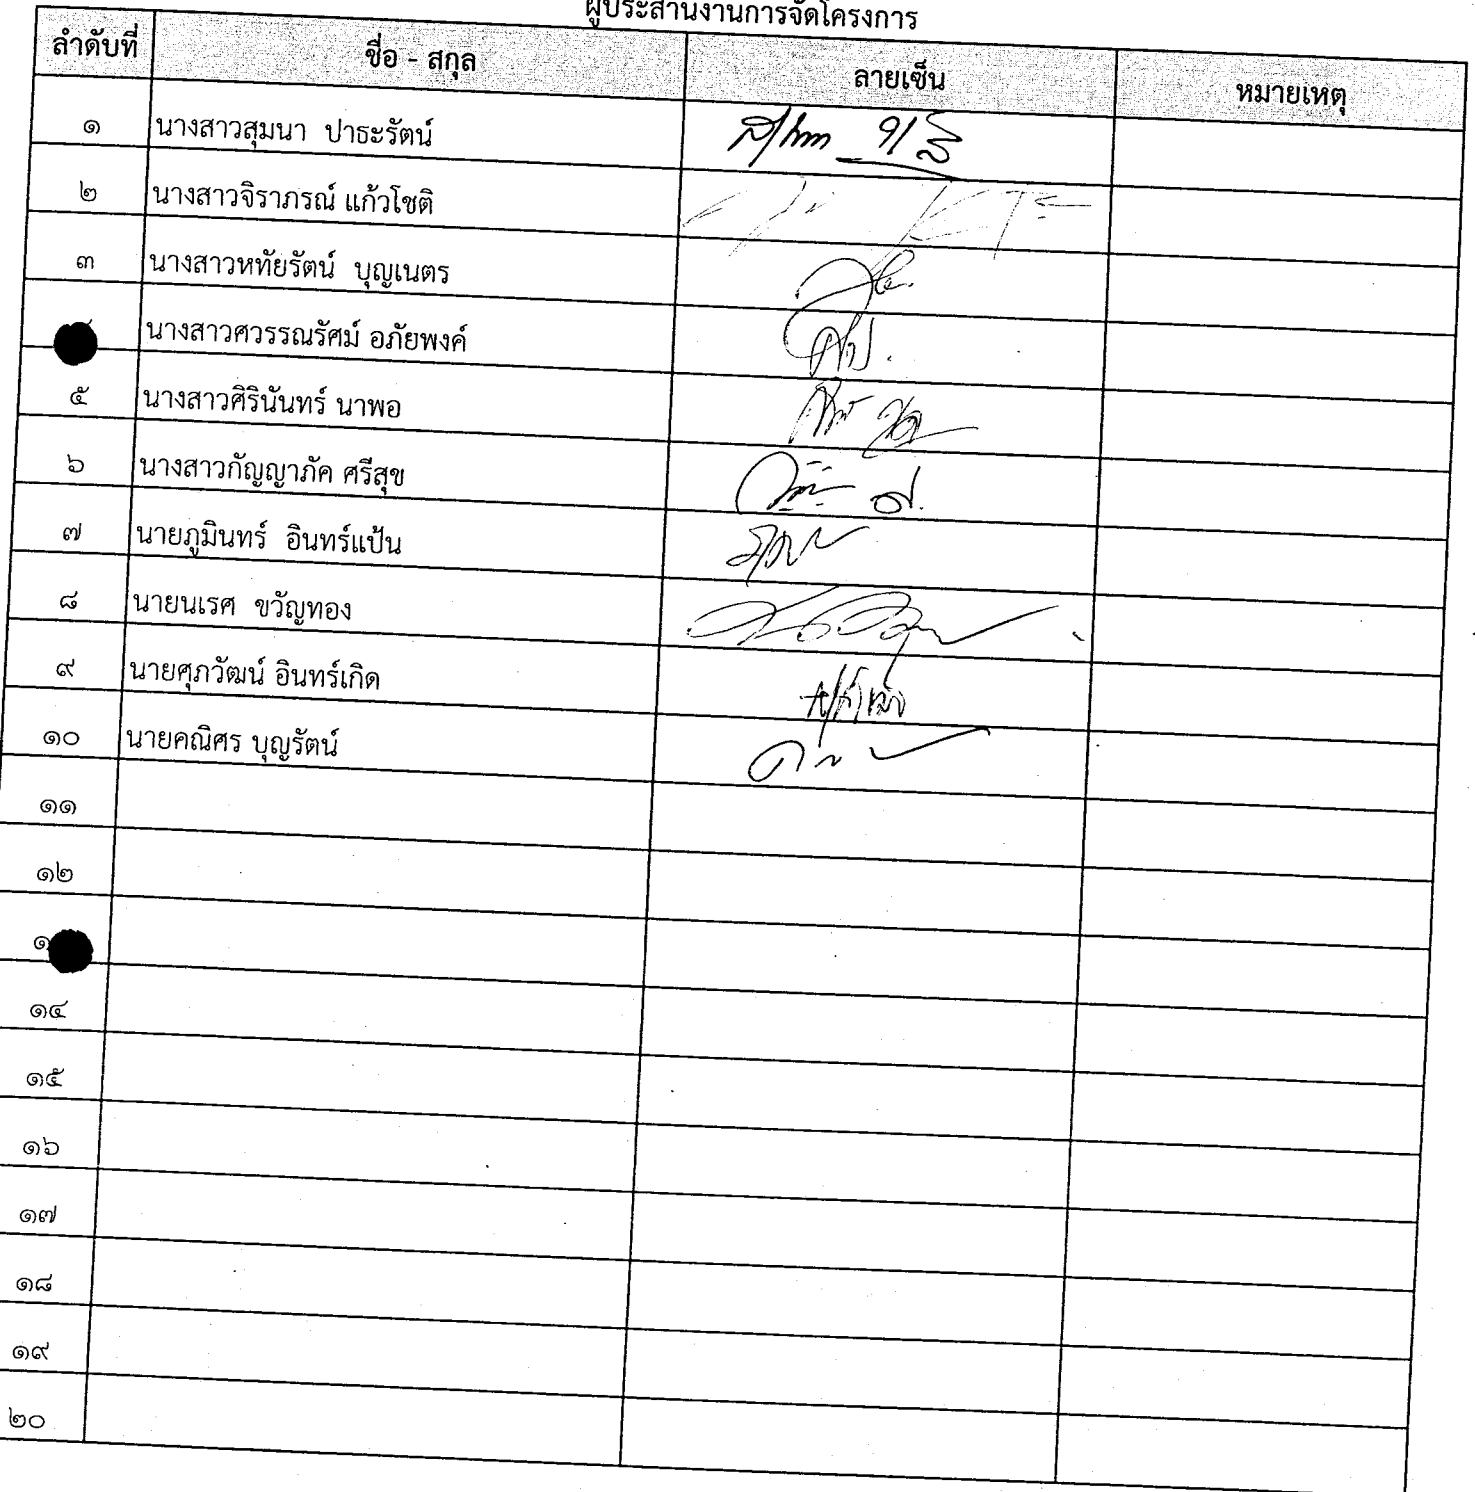 ผู้ประสานงานการจัดโครงการ
ลำดับที่ ชื่อ - สกุล ลายเซ็น หมายเหตุ
๑ นางสาวสุมนา ปาธะรัตน์
๒ นางสาวจิราภรณ์ แก้วโชติ
๓ นางสาวหทัยรัตน์ บุญเนตร
นางสาวศวรรณรัศม์ อภัยพงค์
๕ นางสาวศิรินันทร์ นาพอ
๖ นางสาวกัญญาภัค ศรีสุข
๗ นายภูมินทร์ อินทร์แป้น
๘ นายนเรศ ขวัญทอง
๙ นายศุภวัฒน์ อินทร์เกิด
๑๐ นายคณิศร บุญรัตน์
๑๑
๑๒
๑
๑๔
๑๕
๑๖
๑๗
๑๘
๑๙
๒๐